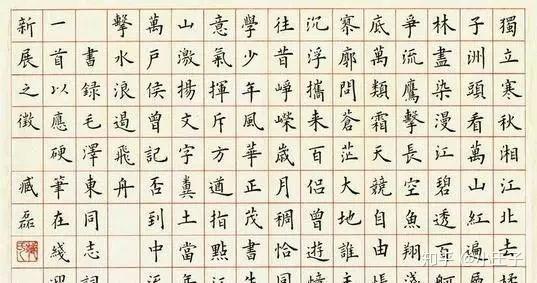 獨立寒秋湘江北去
子洲頭看萬山紅遍
林盡染漫江碧透百舸
爭流鷹擊長空魚翔淺
底萬類霜天競自由
寥廓問蒼茫大地誰主
沉浮攜来百侣曾遊憶
往昔崢嶸歲月稠恰同
學少年風華正茂書生
意氣揮斥方遒指點江
山激揚文字糞土當年
萬戶侯曾記否到中流
擊水浪遏飛舟
書録毛澤東同志詞
一首以應硬筆在綫迎
新展之徵 臧磊
知乎